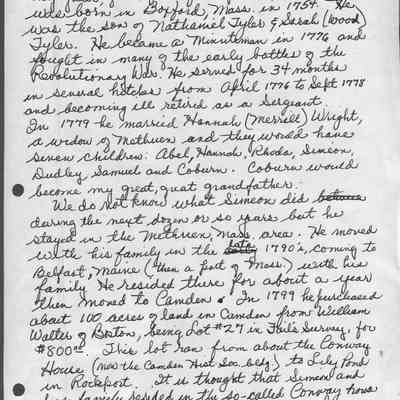 was born in Boxford, Mass. in 1754. He
was the son of Nathaniel Tyler & Sarah (Wood)
Tyler. He became a Minuteman in 1776 and
fought in many of the early battles of the
Revolutionary War. He served for 34 months
in several hitches from April 1776 to Sept 1778
and becoming ill retired as a Sergeant.
In 1779 he married Hannah (Merrill) Wright,
a widow of Methuen and they would have
seven children: Abel, Hannah, Rhoda, Simeon,
Dudley, Samuel and Coburn. Coburn would
become my great, great grandfather.
We do not know what Simeon did
during the next dozen or so years but he
stayed in the Methuen, Mass. area. He moved
with his family in the late 1790's, coming to
Belfast, Maine (then a part of Mass.) with his
family. He resided there for about a year
then moved to Camden. In 1799 he purchased
about 100 acres of land in Camden from William
Walter of Boston, being Lot #27 in Fales Survey, for
$800.00. This lot ran from about the Conway
House (now the Camden Hist. Soc. bldg.) to Lily Pond
in Rockport. It is thought that Simeon and
his family resided in the so-called Conway house